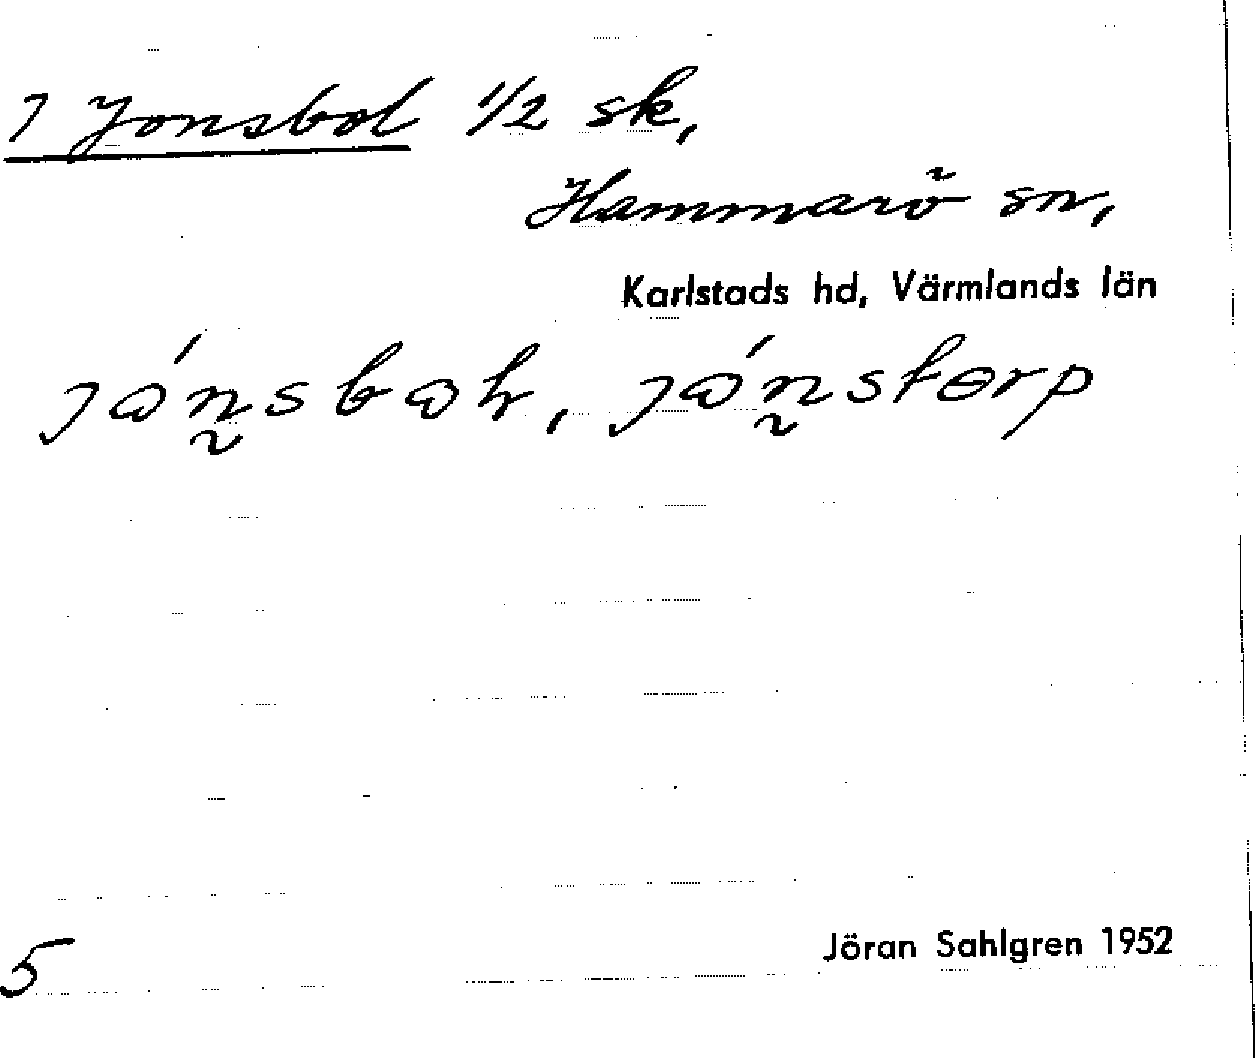 1 Jonsbol 1/2 sk,
Hammarö sn,
Karlstads hd, Värmlands län
5
Jöran Sahlgren 1952